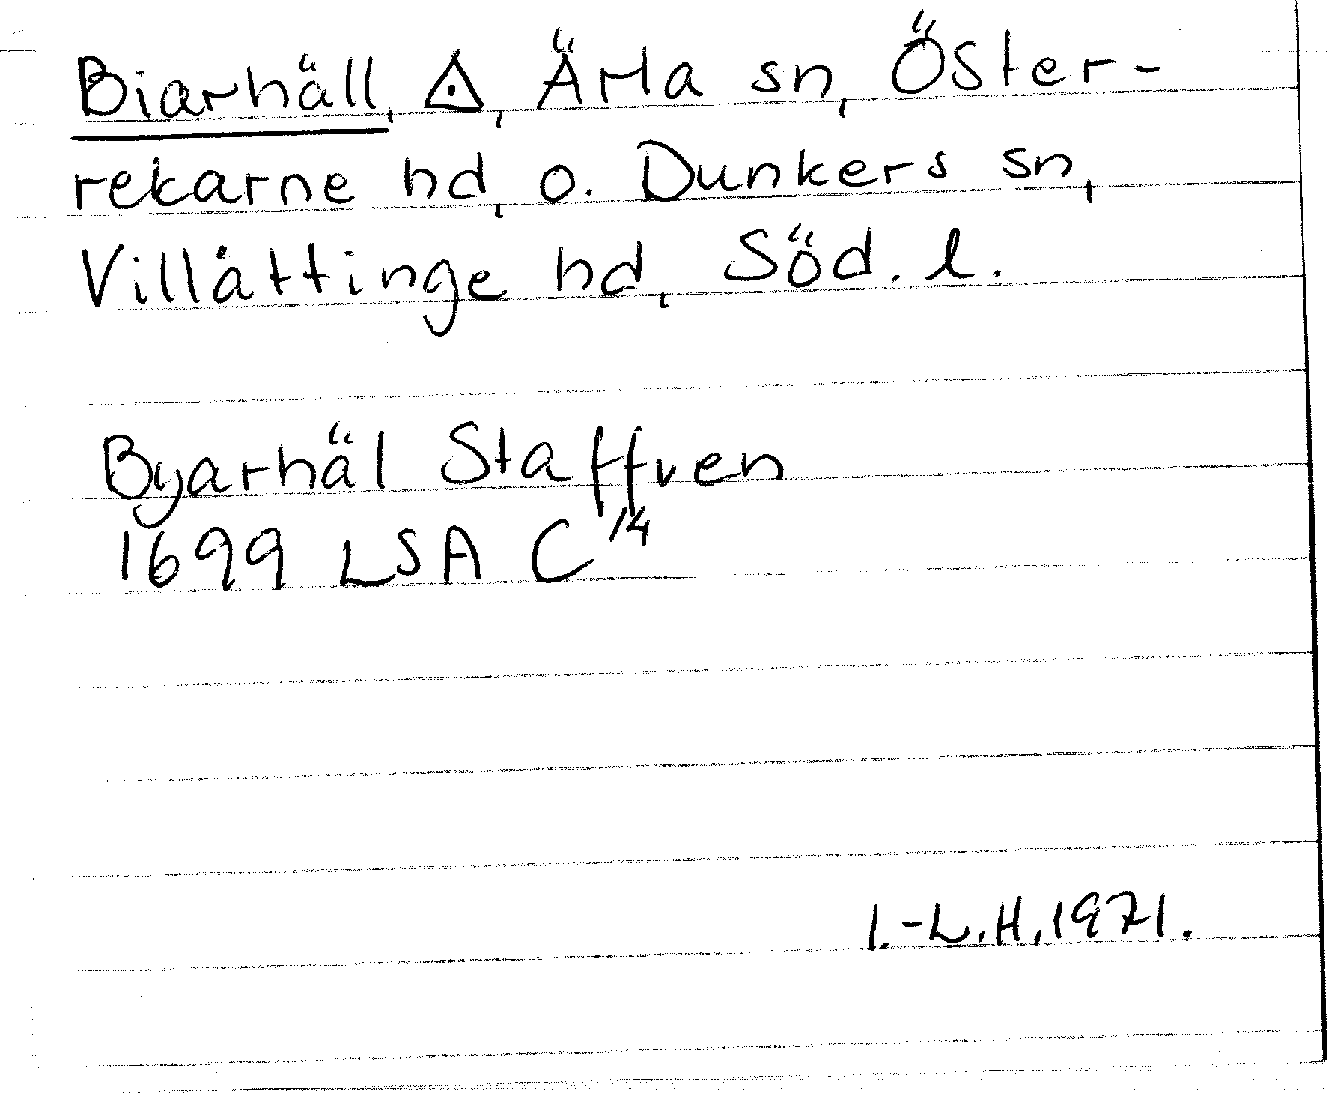 Biarhäll, ⚠, Ärla sn, Öster-
rekarne hd, o. Dunkers sn,
Villåttinge hd, Söd. l.
Byarhäl Staffven
1699 LSA C 14
I.-L.H. 1971.